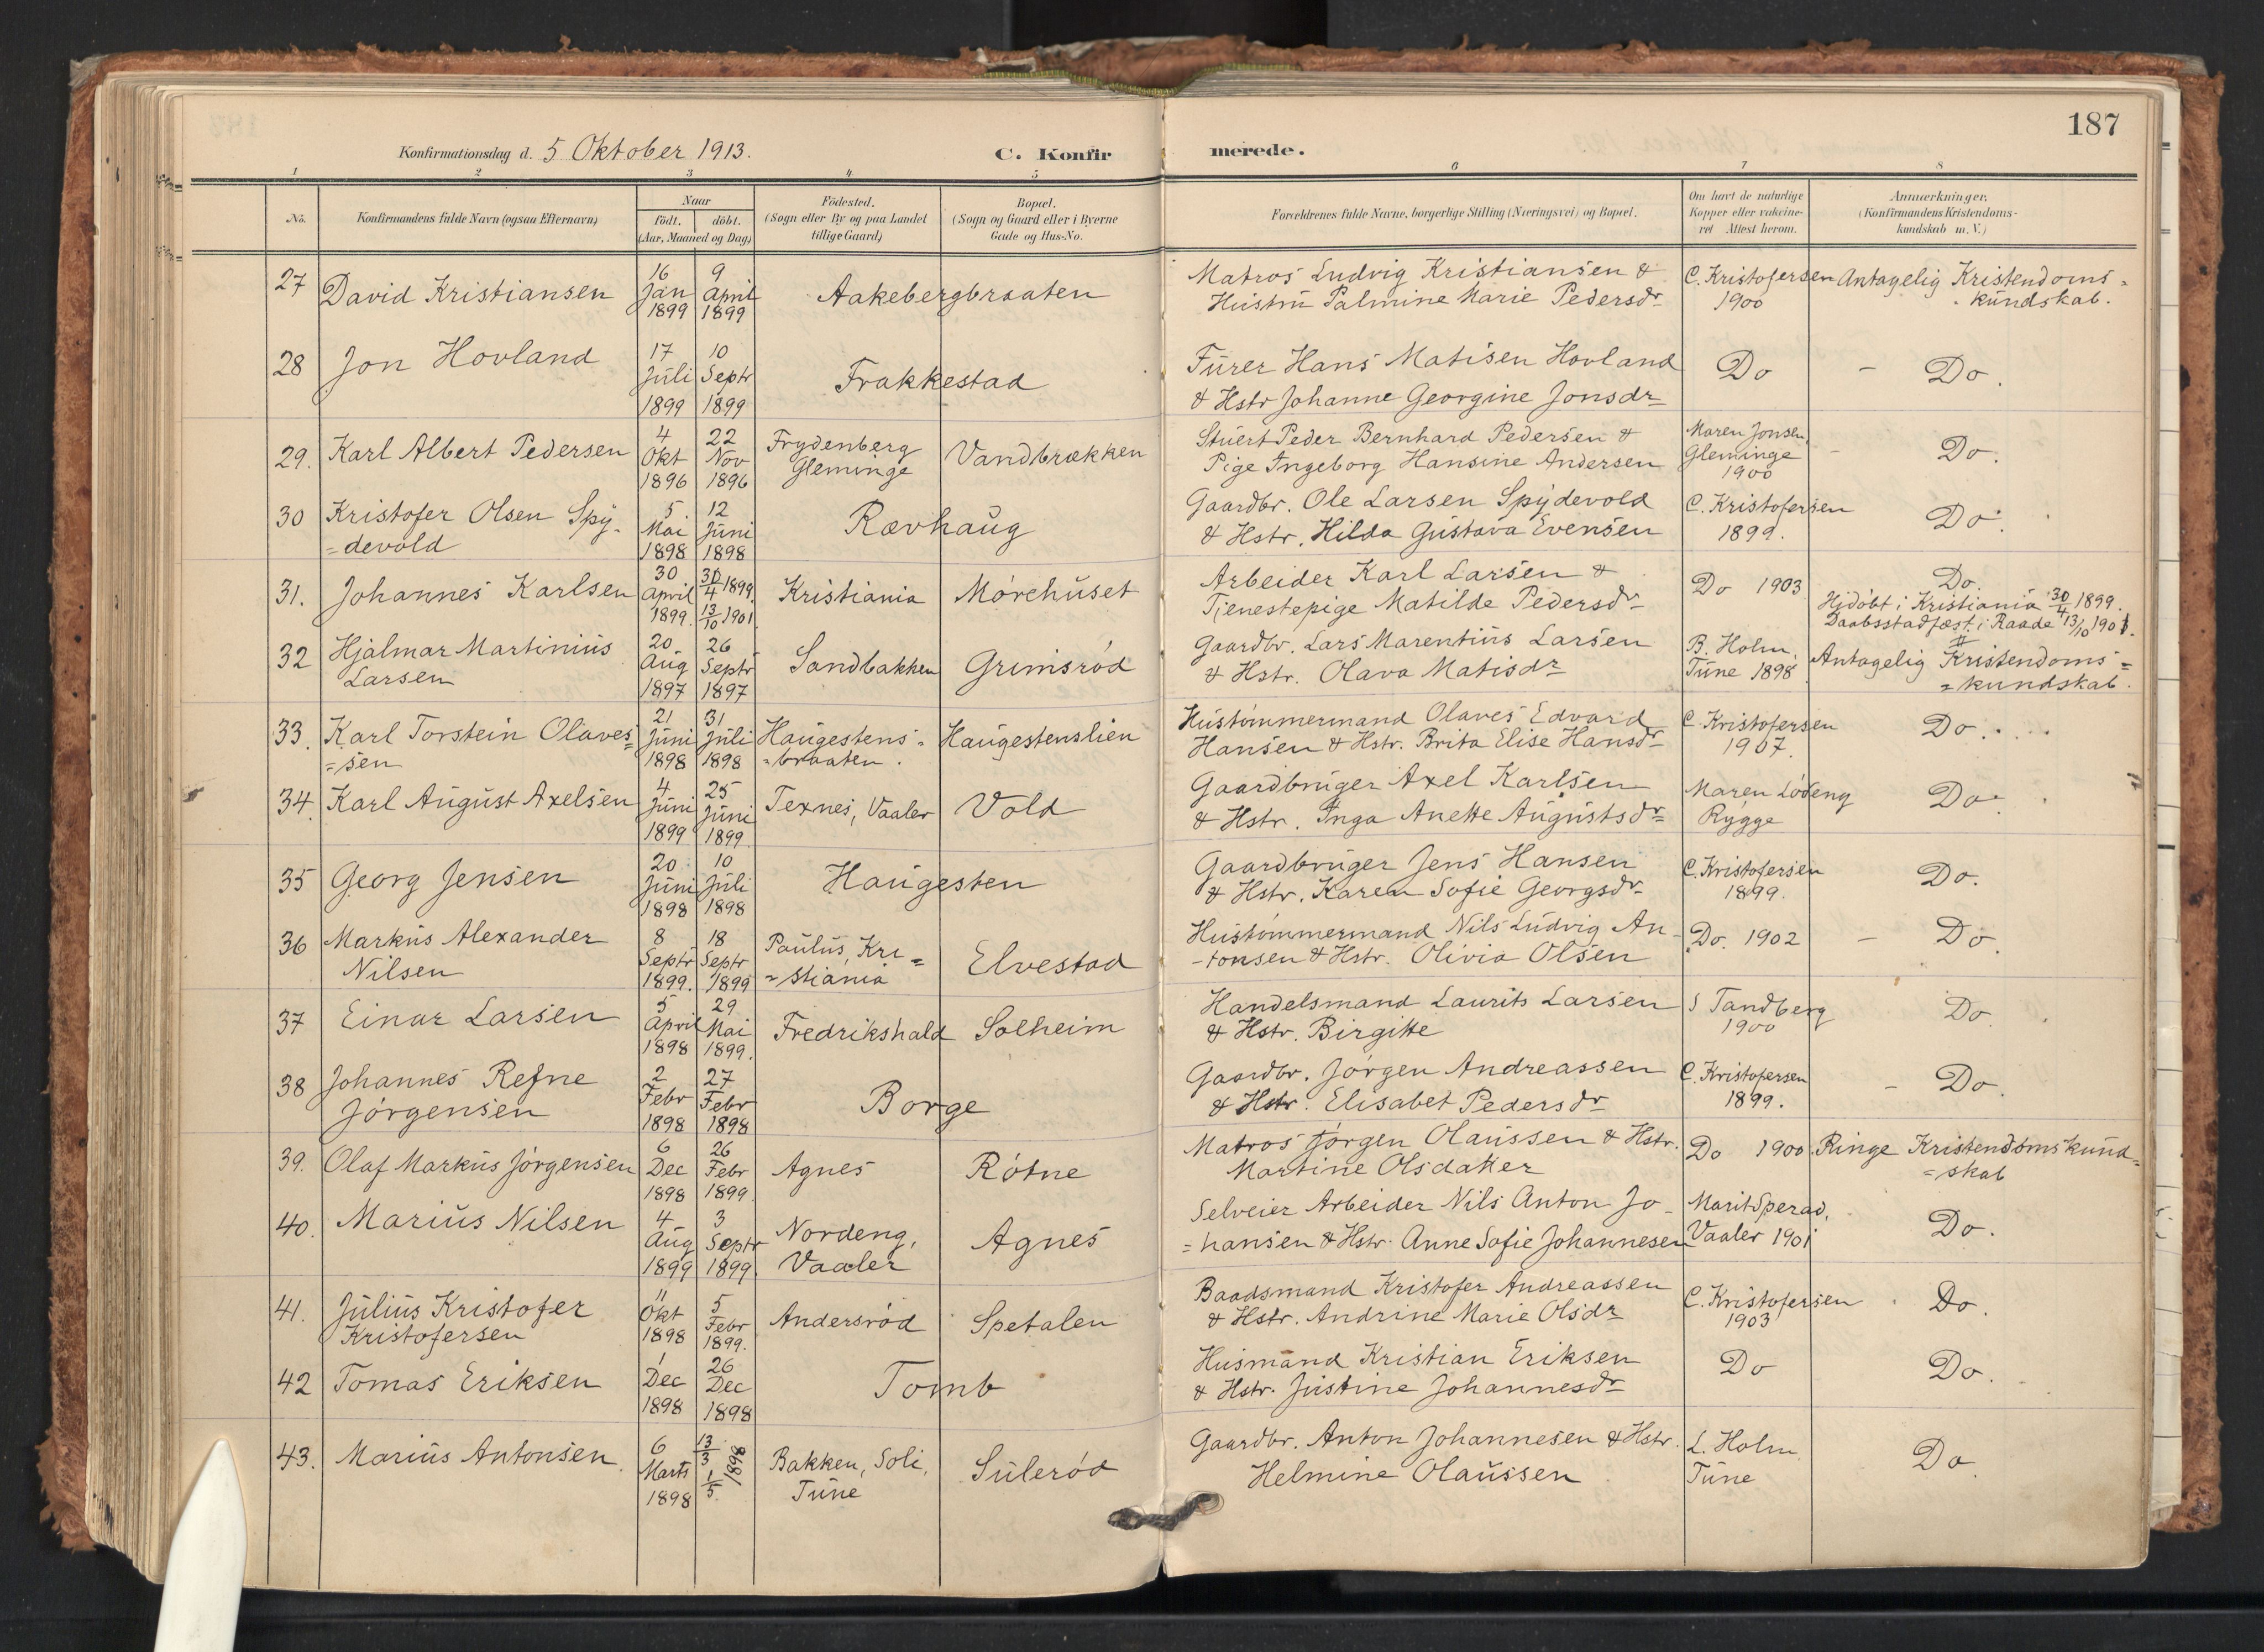 187
Konfirmationsdag d. 5 Oktober 1913. C. Konfirmerede.
1 2 3 4 5 6 7 8
No. Konfirmandens fulde Navn (ogsaa Efternavn) Naar født. døbt. (Aar, Maaned og Dag) Fødested. (Sogn eller By og paa Landet tillige Gaard) Bopæl. (Sogn og Gaard eller i Byerne Gade og Hus-No. Forældrenes fulde Navne, borgerlige Stilling (Næringsvei) og Bopæl. Om havt de naturlige Kopper eller vakcineret Attest herom. Anmærkninger. (Konfirmandens Kristendomskundskab m. V.)
27 David Kristiansen 16 Jan 1899 9 April 1899 Aakebergbraaten Matros Ludvig Kristiansen & Hustru Palmine Marie Pedersdr C. Kristofersen 1900 Antagelig Kristendoms=kundskab.
28 Jon Hovland 17 Juli 1899 10 Septr 1899 Frakkestad Furer Hans Matisen Hovland & Hstr Johanne Georgine Jonsdr Do - Do.
29. Karl Albert Pedersen 4 Okt 1896 22 Nov 1896 Frydenberg Gleminge Vandbrækken Stuert Peder Bernhard Pedersen & Pige Ingeborg Hansine Andersen Maren Jonsen, Gleminge 1900 - Do.
30 Kristofer Olsen Spy-=devold 5 Mai 1898 12 Juni 1898 Rævhaug Gaardbr. Ole Larsen Spydevold & Hstr. Hilda Gustava Evensen C. Kristofersen 1899. Do.
31. Johannes Karlsen 30 April 1899. 30/4 1899. 13/10 1901. Kristiania Mørehuset Arbeider Karl Larsen & Tjenestepige Matilde Pedersdr Do 1903 Do. Hjdøbt i Kristiania 30/4 1899. Daabsstadfæst. i Raade 13/10 1901.
32 Hjalmar Martinius Larsen 20 Aug 1897 26 Septr 1897 Sandbakken Grimsrød Gaardbr. Lars Marentius Larsen & Hstr. Olava Matisdr B. Holm, Tune 1898 Antagelig Kristendoms==kundskab.
33. Karl Torstein Olaves==sen 21 Juni 1898 31 Juli 1898 Haugestens-=braaten. Haugestenslien Hustømmermand Olaves Edvard Hansen & Hstr. Brita Elise Hansdr C. Kristofersen 1907. Do.
34. Karl August Axelsen 4 Juni 1899 25 Juni 1899. Texnes, Vaaler Vold Gaardbruger Axel Karlsen & Hstr. Inga Anette Augustsdr Maren Lødeng Rygge Do.
35 Georg Jensen 20 Juni 1898 10 Juli 1898 Haugesten Gaardbruger Jens Hansen & Hstr. Karen Sofie Georgsdr C. Kristofersen 1899. Do.
36 Markus Alexander Nilsen 8 Septr 1899. 18 Septr 1899 Paulus, Kri==stiania Elvestad Hustømmermand Nils Ludvig An--tonsen & Hstr. Olivia Olsen Do. 1902 - Do.
37 Einar Larsen 5 April 1898 29 Mai 1899. Fredrikshald Solheim Handelsmand Laurits Larsen & Hstr. Birgitte S Tandberg 1900 Do.
38 Johannes Refne Jørgensen 2 Febr 1898 27 Febr 1898 Borge Gaardbr. Jørgen Andreassen & Hstr. Elisabet Pedersdr C. Kristofersen 1899. - Do.
39. Olaf Markus Jørgensen 6 Dec 1898 26 Febr 1899. Agnes Røtne Matros Jørgen Olaussen & Hstr. Martine Olsdatter Do 1900. Ringe Kristendomskund==skab
40. Marius Nilsen 4 Aug 1899 3 Septr 1899. Nordeng, Vaaler Agnes Selveier Arbeider Nils Anton Jo-=hansen & Hstr. Anne Sofie Johannesen Marit Sperad, Vaaler 1901 Do.
41. Julius Kristofer Kristofersen 11 Okt 1898 5 Febr 1899. Andersrød Spetalen Baadsmand Kristofer Andreassen & Hstr. Andrine Marie Olsdr C. Kristofersen 1903 Do.
42 Tomas Eriksen 1 Dec 1898 26 Dec 1898 Tomb Husmand Kristian Eriksen & Hstr. Justine Johannesdr Do Do.
43. Marius Antonsen. 6 Marts 1898 13/3 1/5 1898 Bakken, Soli, Tune Sulerød Gaardbr. Anton Johannesen & Hstr. Helmine Olaussen L. Holm Tune Do